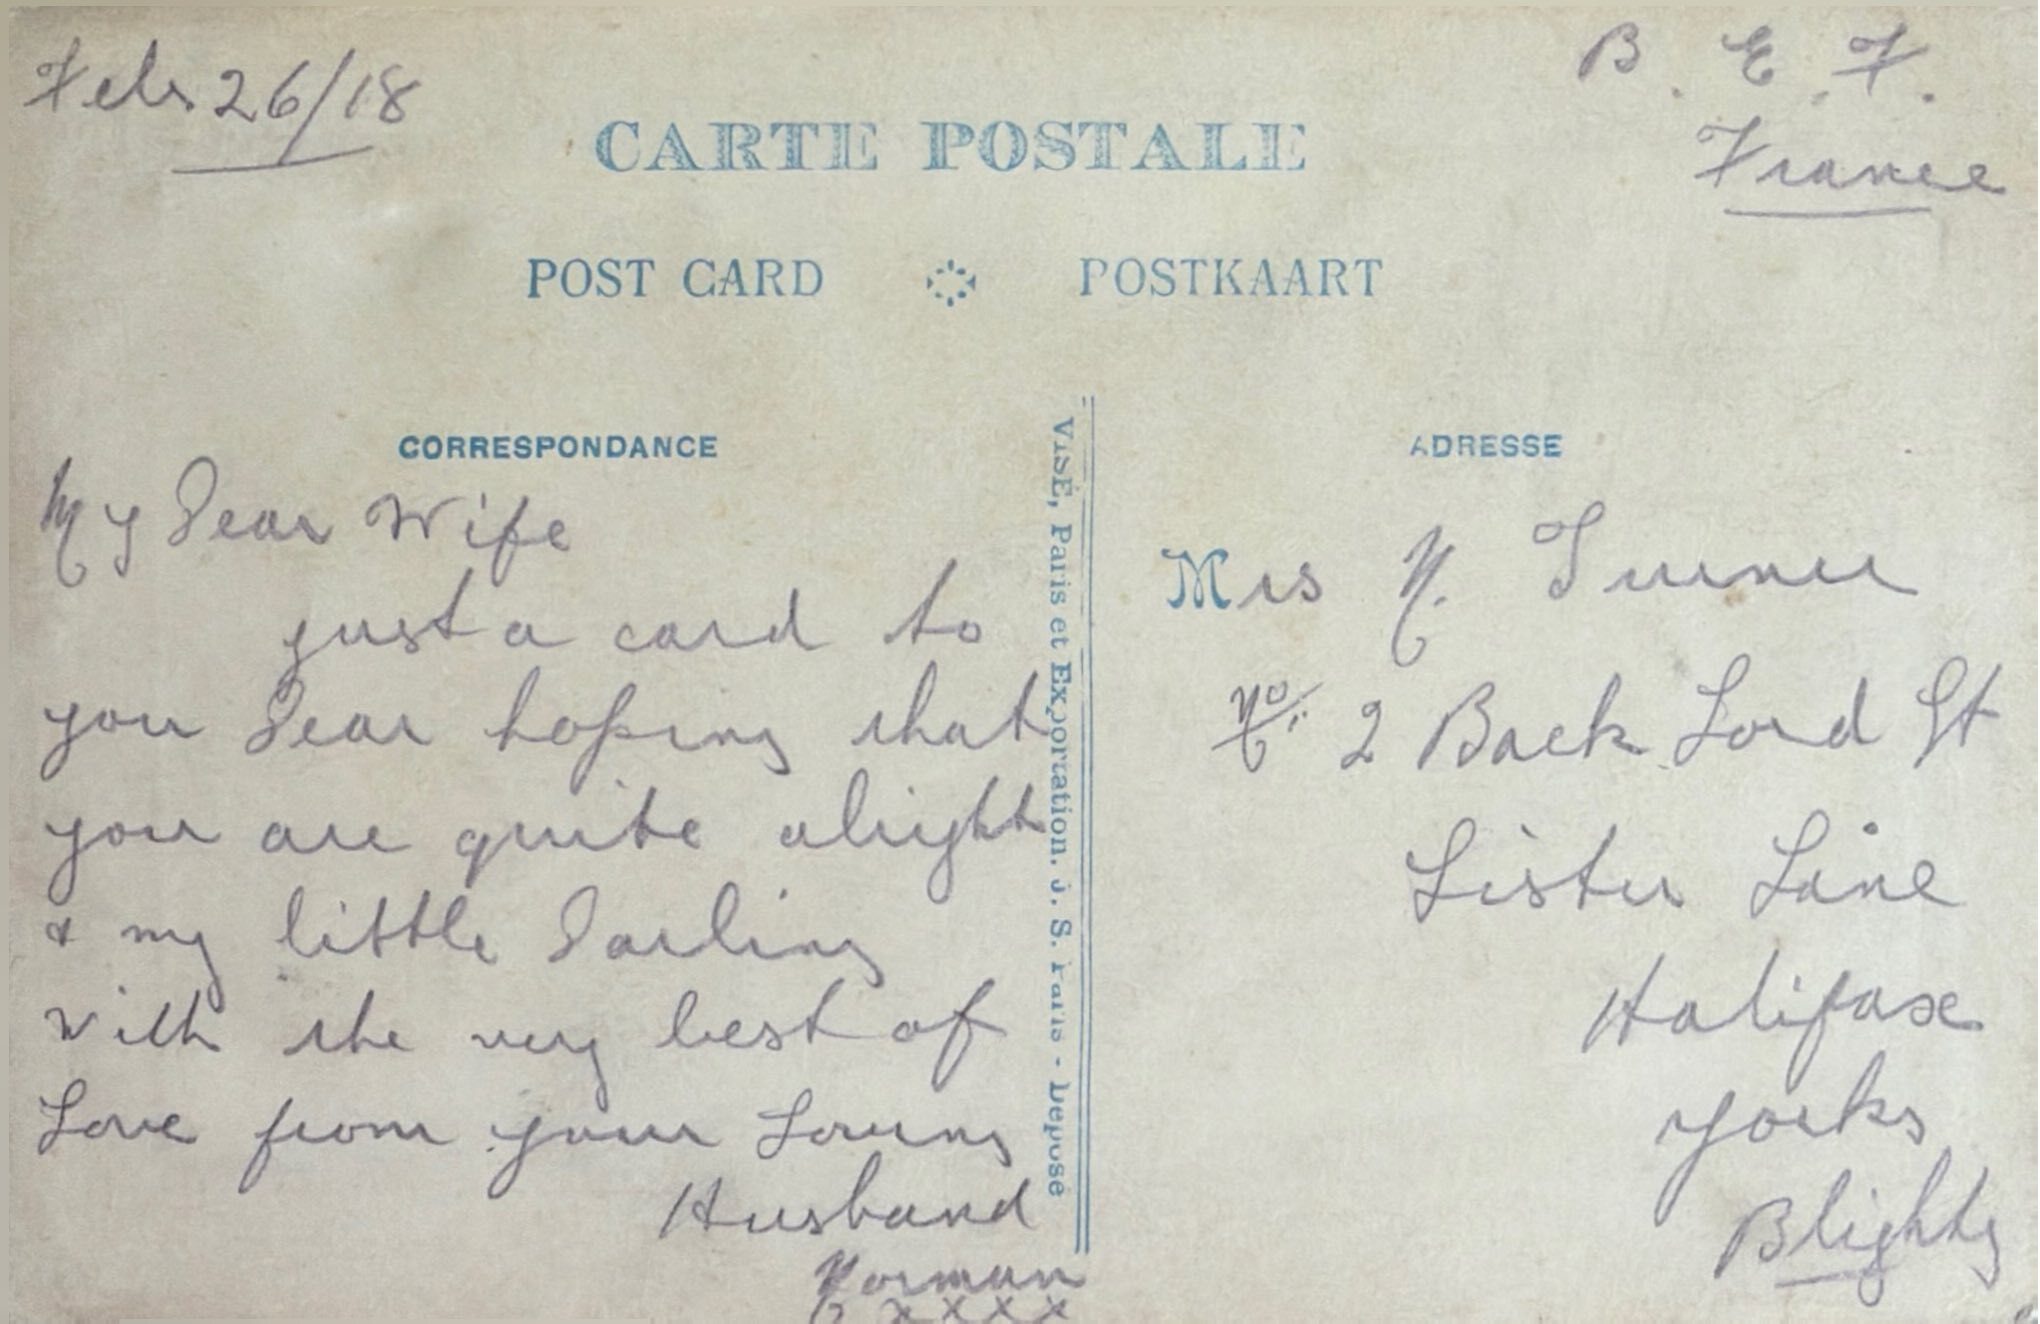 Feb 26/18
B. E. F.
France
CARTE POSTALE
POST CARD POSTKAART
CORRESPONDANCE
My Dear Wife
just a card to
you Dear hoping that
you are quite alright
& my little Darling
with the very best of
Love from your Loving
Husband
Norman
x x x x
VISÉ, Paris et Exportation. J. S. Paris - Déposé
ADRESSE
Mrs N. Turner
No. 2 Back Lord St
Lister Lane
Halifax
Yorks
Blighty